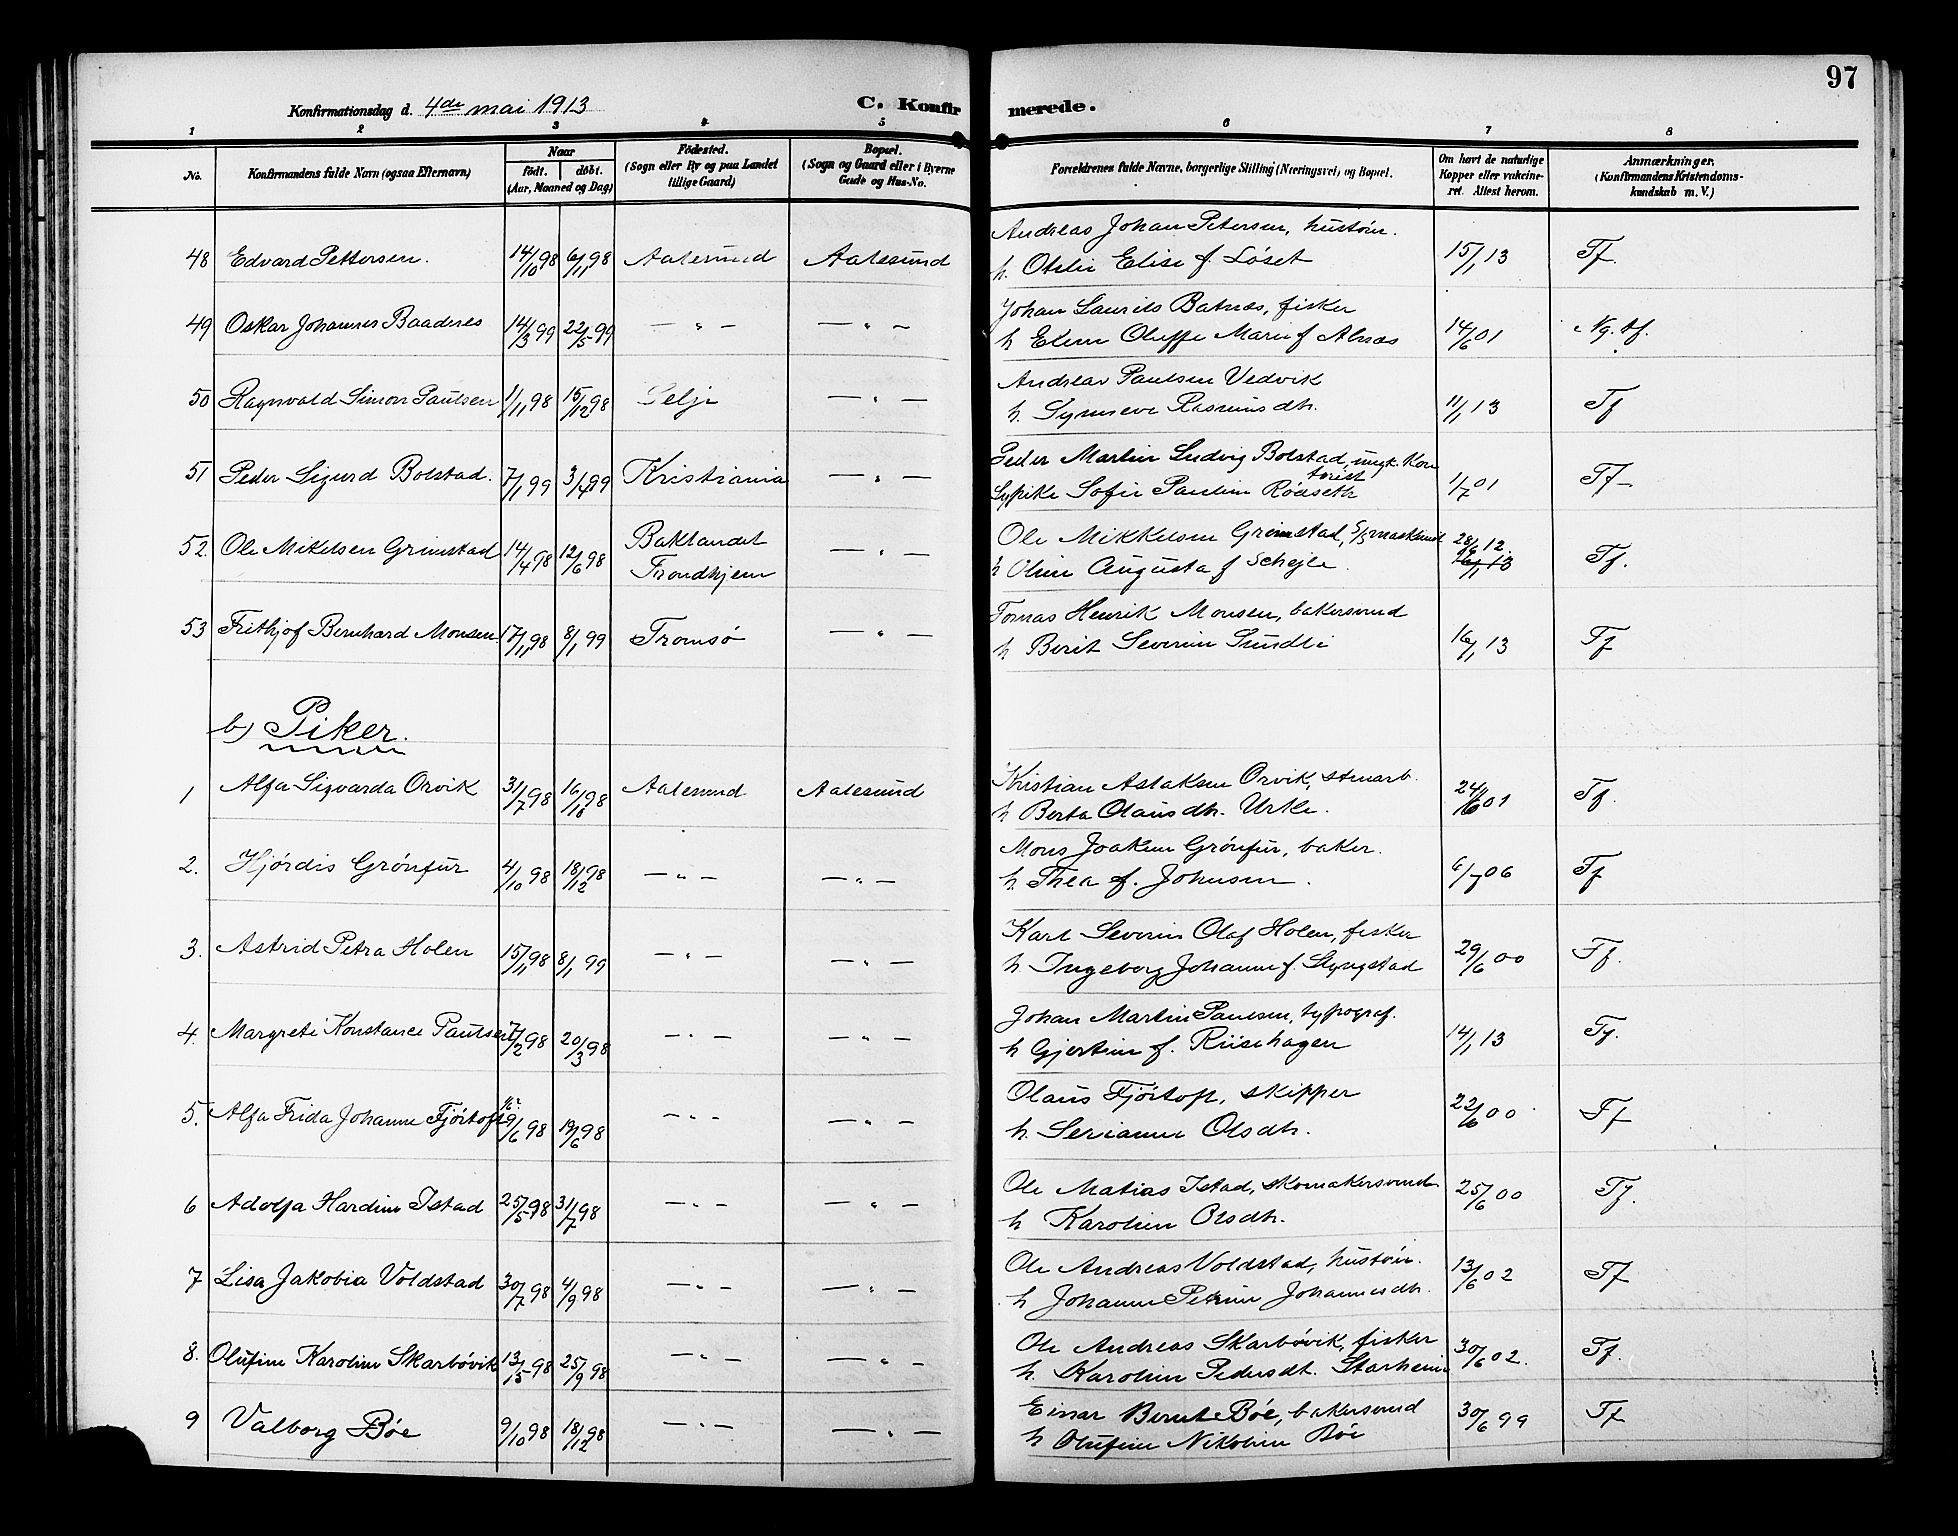 97
Konfirmationsdag d. 4de mai 1913
C. Konfirmerede.
1 2 3 4 5 6 7 8
No. Konfirmandens fulde Navn (ogsaa Efternavn) Naar født. døbt. (Aar, Maaned og Dag) Fødested. (Sogn eller By og paa Landet tillige Gaard) Bopæl. (Sogn og Gaard eller i Byerne Gade og Hus-No. Forældrenes fulde Navne, borgerlige Stilling (Næringsvei) og Bopæl. Om havt de naturlige Kopper eller vakcineret. Attest herom. Anmærkninger. (Konfirmandens Kristendomskundskab m. V.)
48 Edvard Pettersen. 14/10 98 6/11 98 Aalesund Aalesund Andreas Johan Petersen, hustøm.
h. Otelie Elise f. Løset 15/1 13 Tf.
49 Oskar Johannes Baadnes 14/3 99 22/5 99 — " — — " — Johan Laurits Batnes, fisker
h Eline Oluffe Marie f Alnæs 14/6 01 Ng. tf.
50 Ragnvald Simon Paulsen 1/11 98 15/12 98 Selje — " — Andreas Paulsen Vedvik
h. Synneve Rasmusdtr. 11/1 13 Tf
51 Peder Sigurd Bolstad. 7/1 99 3/4 99 Kristiania — " — Peder Martin Ludvig Bolstad, ungk. kontorist
Sypike Sofie Pauline Rødseth 1/7 01 Tf
52. Ole Mikelsen Grimstad 14/4 98 12/6 98 Baklandet Trondhjem — " — Ole Mikkelsen Grimstad, S/S maskinist
h Oline Augusta f Schejle. 28/6 12. 16/1 13 Tf.
53 Frithjof Bernhard Monsen 17/11 98 8/1 99 Tromsø — " — Tomas Henrik Monsen, bakersvend
h Berit Severine Sundli 16/1 13 Tf
b) Piker.
1 Alfa Sigvarda Orvik 31/7 98 16/10 98 Aalesund Aalesund Kristian Aslaksen Orvik, stenarb.
h Berta Olausdtr. Urke. 24/6 01 Tf.
2. Hjørdis Grønfur 4/10 98 18/12 98 — " — — " — Mons Joakim Grønfur, baker.
h. Thea f. Johnsen. 6/7 06 Tf
3. Astrid Petra Holen 15/11 98 8/1 99 — " — — " — Karl Severin Olaf Holen, fisker
h Ingeborg Johanne f. Slyngstad 29/6 00 Tf.
4. Margrete Konstance Paulsen 7/2 98 20/3 98 — " — — " — Johan Martin Paulsen, typograf.
h Gjertine f. Riisehagen 14/1 13 Tf.
5. Alfa Frida Johanne Fjørtoft 9/6 98 19/6 98 — " — — " — Olaus Fjørtoft, skipper
h. Serianne Olsdtr. 22/6 00 Tf
6 Adolfa Hardine Istad 25/5 98 31/7 98 — " — — " — Ole Matias Istad, skomakersvend
h Karoline Olsdtr. 25/6 00 Tf.
7 Lisa Jakobia Voldstad 30/7 98 4/9 98 — " — — " — Ole Andreas Voldstad, hustøm.
h Johanne Petrine Johannesdtr. 13/6 02 Tf
8. Olufine Karoline Skarbøvik 13/5 98 25/9 98 — " — — " — Ole Andreas Skarbøvik, fisker
h. Karoline Pedersdt. Starheim 30/6 02. Tf.
9 Valborg Bøe 9/10 98 18/12 98 — " — — " — Einar Bernt Bøe, bakersvend
h Olufine Nikoline Bøe 30/6 99 Tf